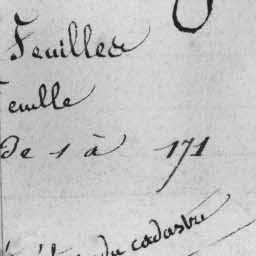 Feuille de
Feuille
de 1 à 171
du cadastre